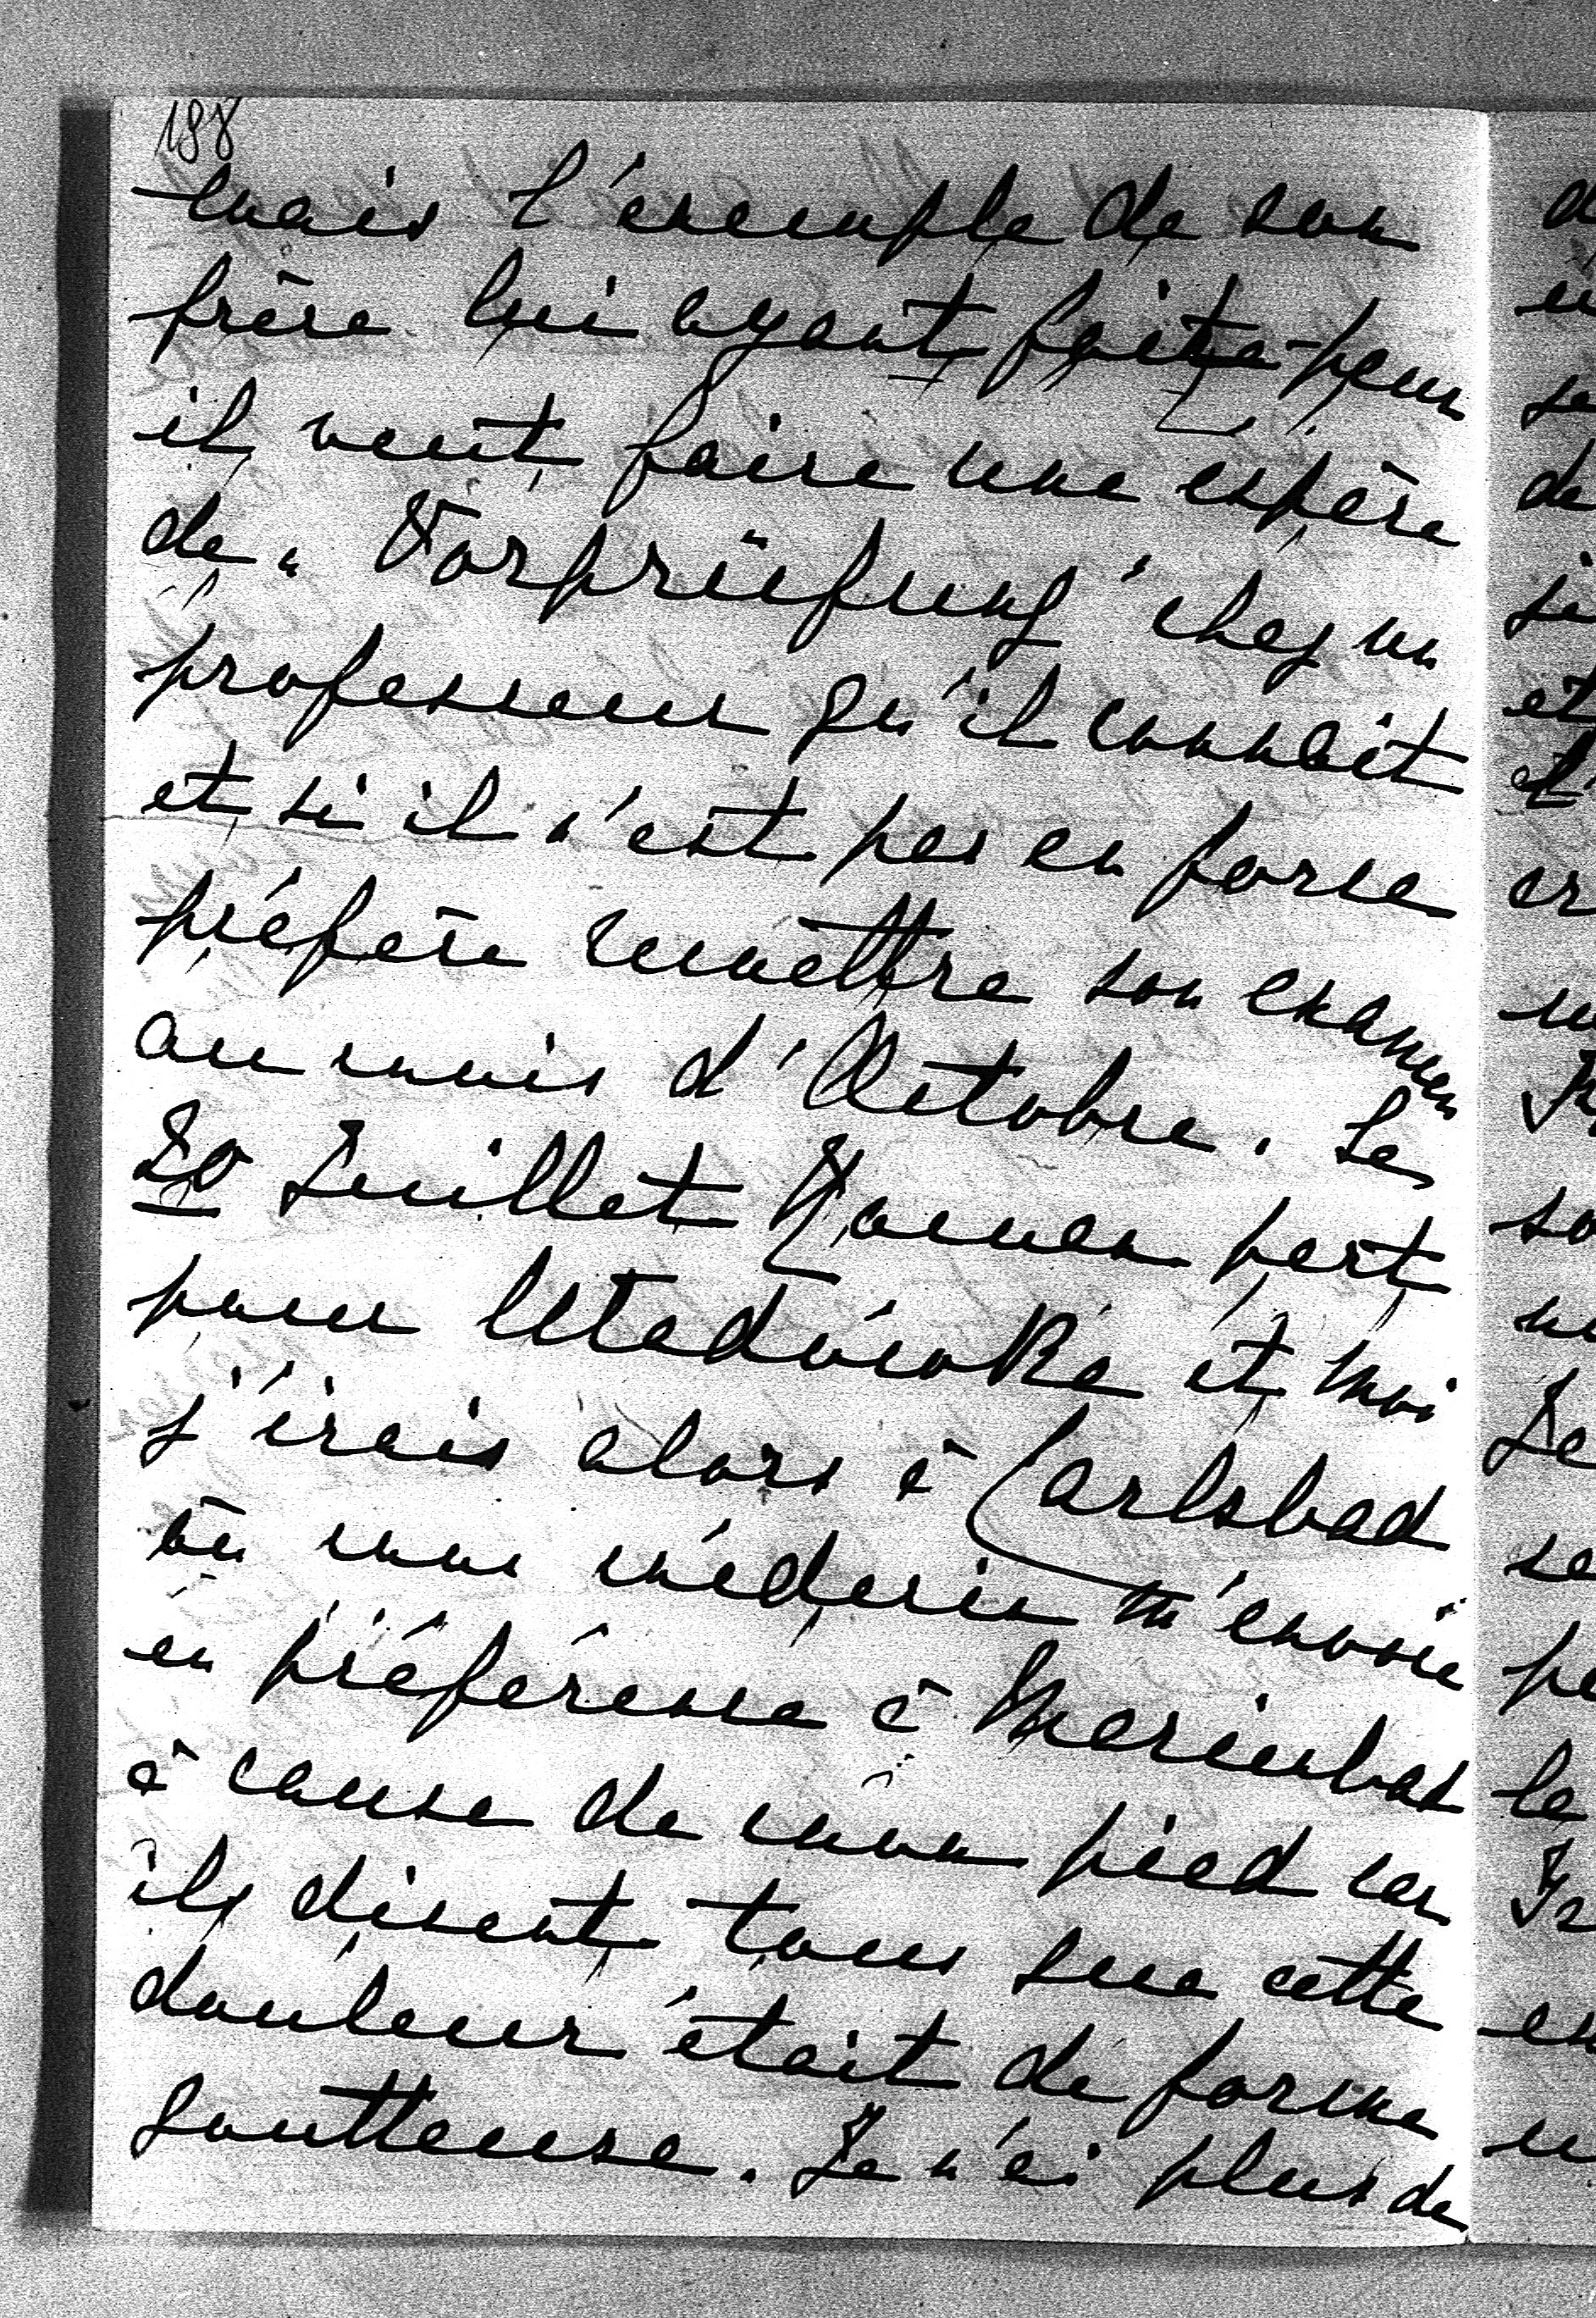 198
mais l'exemple de son
frère lui ayant fait peur
il veut faire une espèce
de „Vorprüfung" chez un
professeur qu'il connait
et si il n'est pas en force
préfère remettre son examen
au mois d'Octobre. Le
20 Juillet part
pour et moi
j'irais alors à Carlsbad
où mon médecin m'envoie
en préférence à Marienbad
à cause de mon pied car
ils disent tous que cette
douleur était de forme
goutteuse. Je n'ai plus de